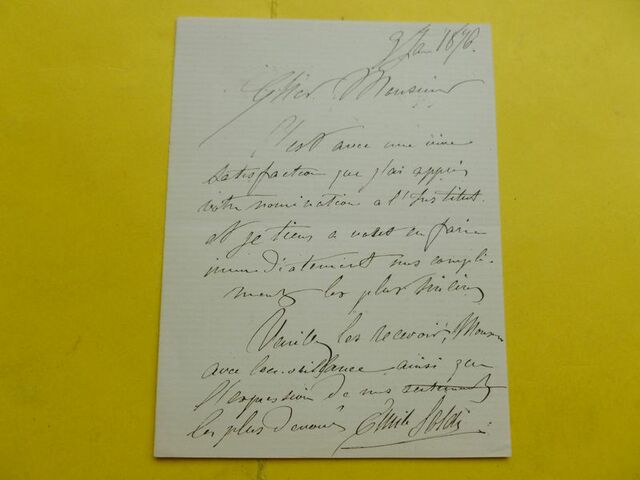 9 Jan 1876.
Cher Monsieur
C'est avec une
satisfaction que j'ai appris
votre nomination a l'Institut.
et je tiens a vous en faire
immediatement mes compli-
ments les plus sincères
Veuillez les recevoir, Monsieur
avec bienveillance ainsi que
l'expression de mes sentiments
les plus devoués Emile Soldi